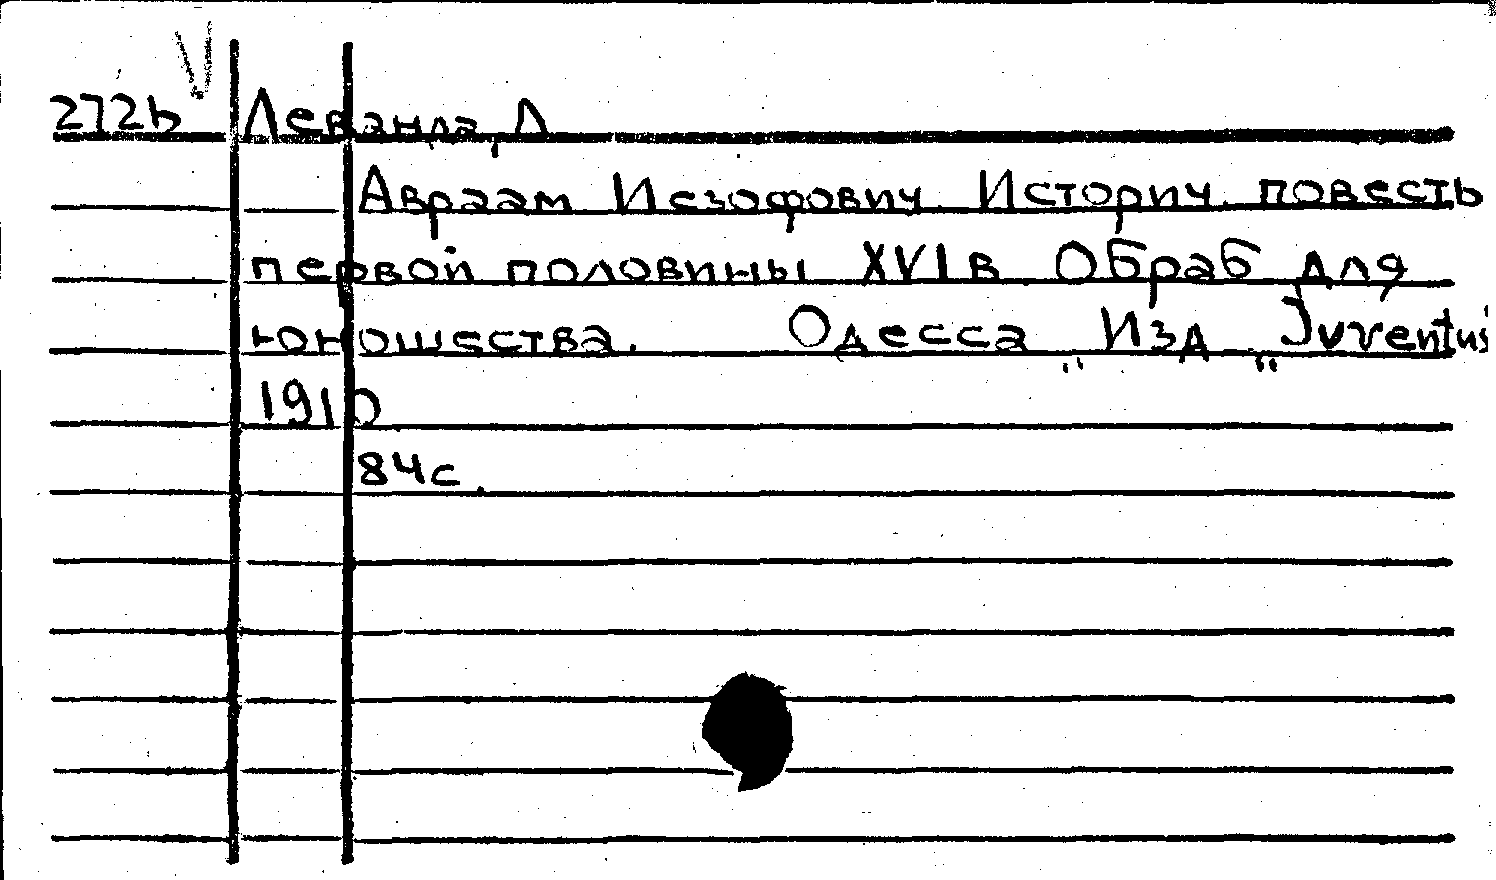 V
272b Леванда, Л
Авраам Иезофович. Историч. повесть
первой половины XVI в Обраб для
юношества. Одесса „Изд „Juventus
1910
84с.